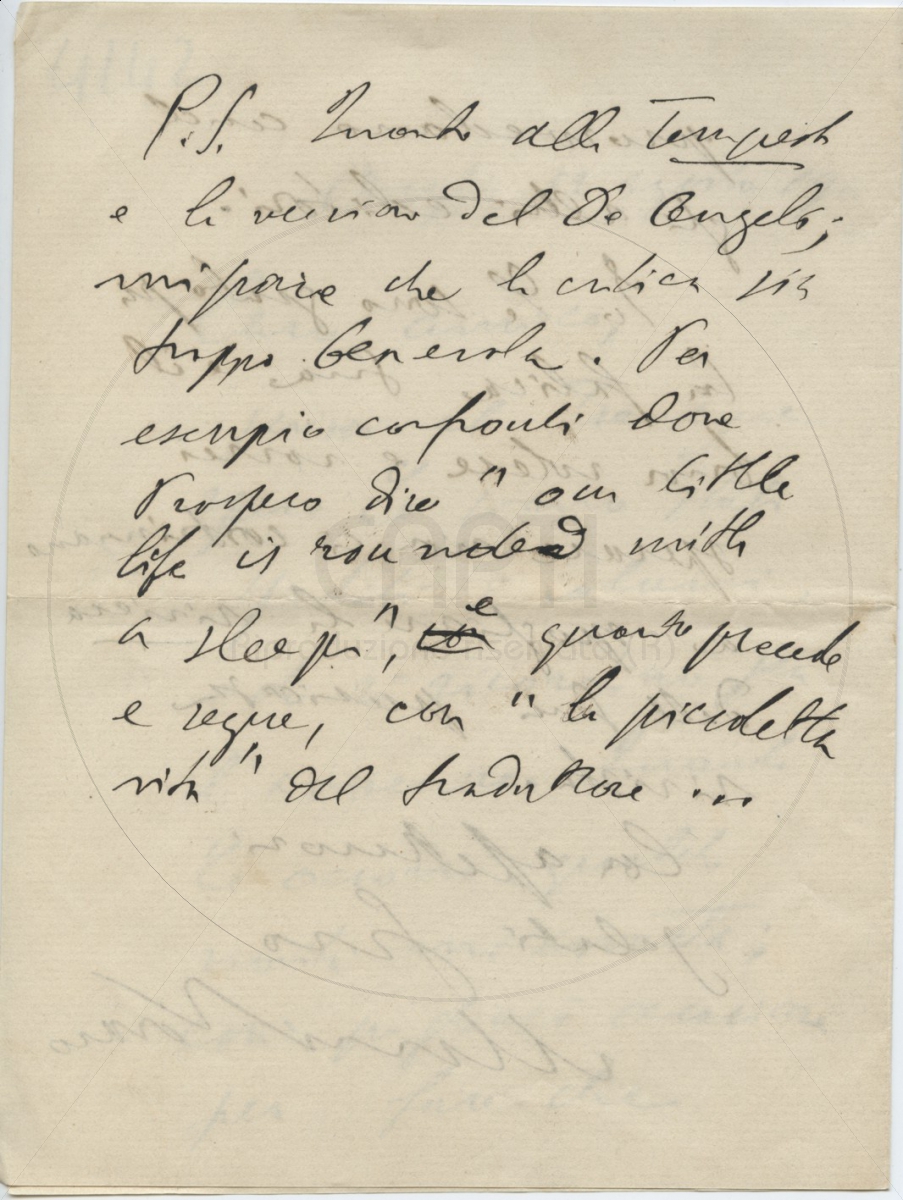 P.S. Quanto alla Tempesta
e la versione del De Angelis;
mi pare che la critica sia
troppo benevola. Per
esempio confronti dove
Prospero dice "our little
life is rounded with
a sleep", e quanto precede
e segue, con "la piccoletta
vita" del traduttore ...